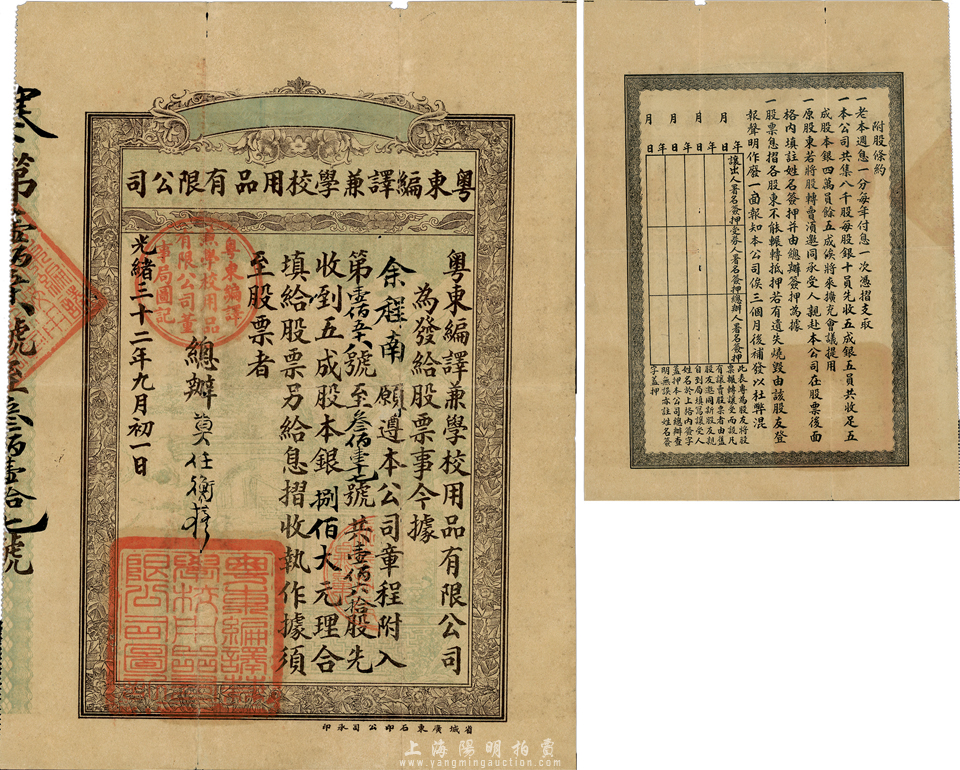 粵東編譯兼學校用品有限公司
粵東編譯兼學校用品有限公司
為發給股票事今據
余程南願遵本公司章程附入
第壹佰
號至叁佰壹十七號共壹佰六拾股先
收到五成股本銀捌佰大元理合
填給股票另給息摺收執作據須
至股票者
總辦莫任衡
光緒三十二年九月初一日
粵東編譯
兼學校用品
有限公司董
事局圖記
粵東編譯兼
學校用品有
限公司圖記
第壹佰
號至叁佰壹拾七號
省城廣東石印公司承印
附股條約
一老本週息一分每年付息一次憑摺支取
一本公司共集八千股每股銀十員先收五成銀五員共收足五
成股本銀四萬員餘五成俟將來擴充會議提用
一原股東若將股轉賣須邀同承受人親赴本公司在股票後面
格內填註姓名簽押並由總辦簽押為據
一股票息摺各股東不能輾轉抵押若有遺失燒毀由該股友登
報聲明作廢一面報知本公司俟三個月後補發以杜弊混
年 月 日
年 月 日
年 月 日
年 月 日
讓出人署名簽押
受券人署名簽押
總辦人署名簽押
此表專為股友將股
票輾轉讓受而設凡
有讓賣股票者由舊
股友邀同新股友親
自到局填寫讓受人
姓名於上格內簽字
蓋押本公司總辦查
明無誤亦註姓名簽
字蓋押
上海陽明拍賣
www.yangmingauction.com